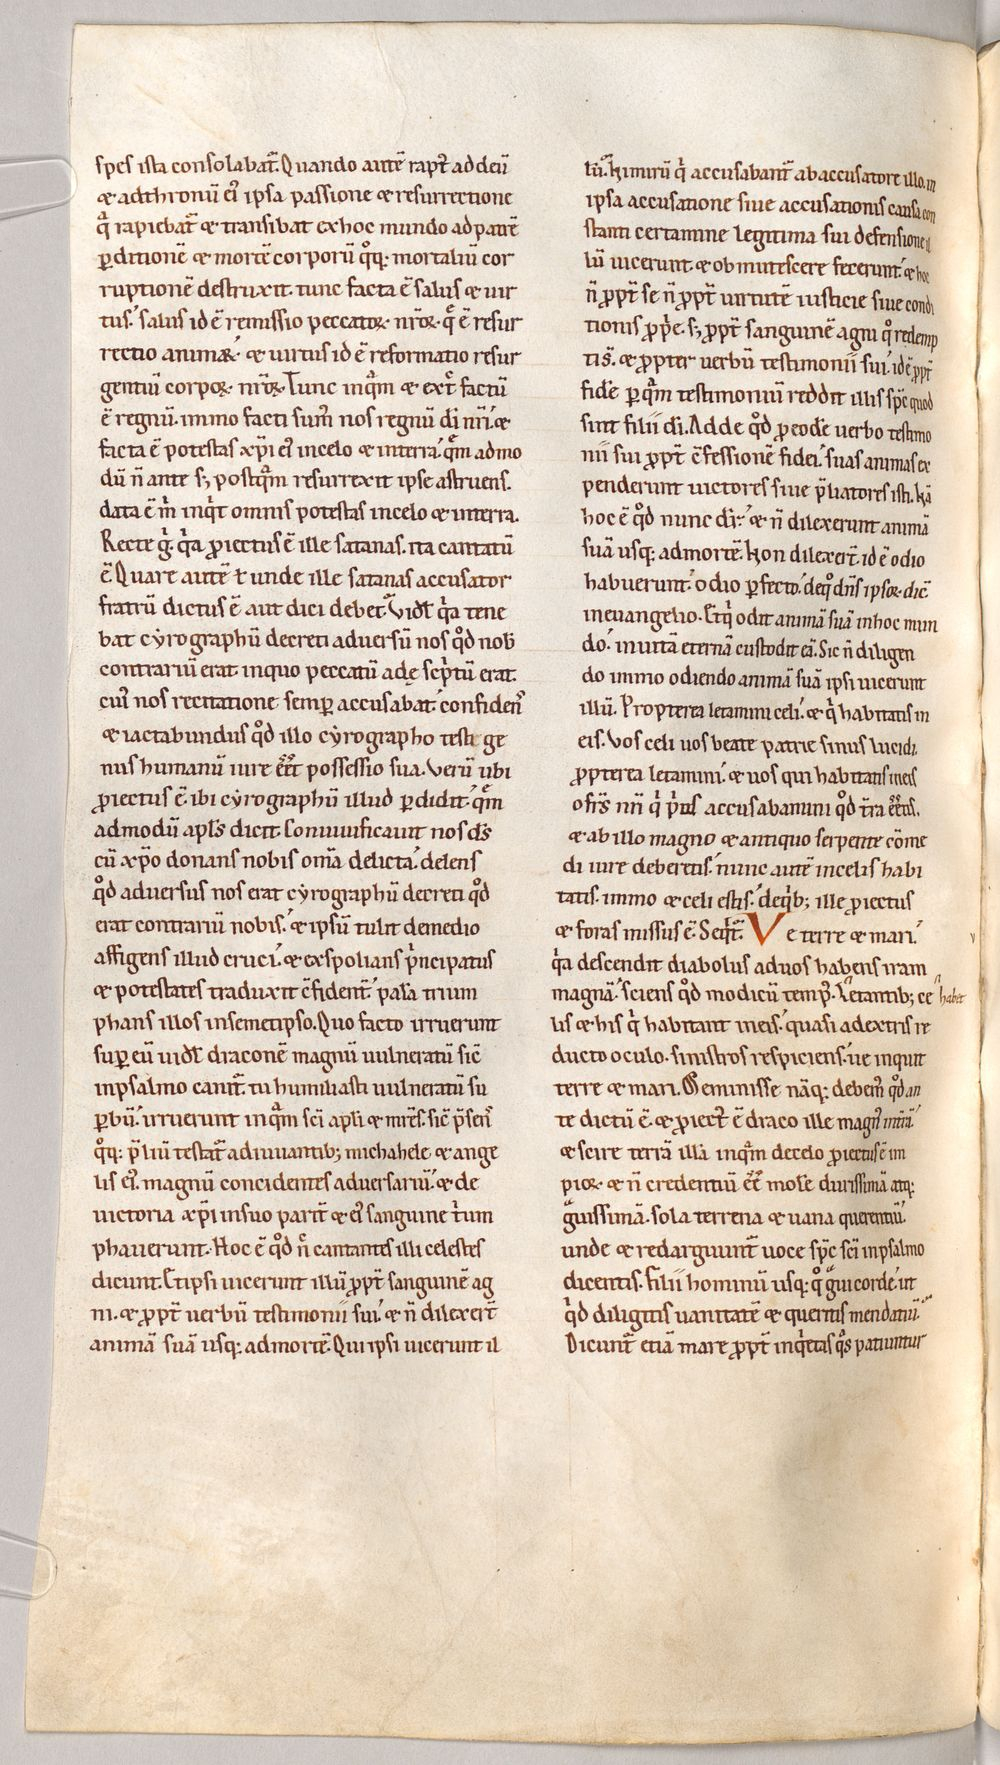 spes ista consolabat᷑. Quando autē rapt᷑ ad deū
& ad thronū ei᷒ ipsa passione & resurrectione
q̇ rapiebat᷑ & transibat ex hoc mundo ad patrē
ꝑditionē & mortē corporū qͦq; mortaliū cor
ruptionē destruxit. tunc facta ē salus & vir
tus. salus id ē remissio peccatoꝝ nr̄oꝝ. q̄ ē resur
rectio animaꝝ. & uirtus id ē reformatio resur
gentiū corpoꝝ nr̄oꝝ. Tunc inquā & ex t᷑ factū
ē regnū. immo facti sum᷒ nos regnū di nr̄i. &
facta ē potestas xp̄i ei᷒ in celo & in terra. quē admo
dū n̄ ante s; postquā resurrexit ipse astruens.
data ē m̄ inqͥt omnis potestas in celo & in terra.
Recte g̊. qͥa ꝓiectus ē ille satanas. ita cantatū
ē. Quare autē ł unde ille satanas accusator
fratrū dictus ē aut dici debet. Vidł qͥa tene
bat cyrographū decreti aduersū nos qͦd nob̄
contrariū erat. in quo peccatū adę scͥptū erat.
cui᷒ nos recitatione semꝑ accusabat. confidenſ
& iactabundus qͦd illo cyrographo teste ge
nus humanū iure eēt possessio sua. Verū ubi
ꝓiectus ē. ibi cyrographū illud ꝑdidit. quē
admodū apl̄s dicit. Conuiuificauit nos d̄s
cū xp̄o donans nobis om̄a delicta. delens
qͦd aduersus nos erat cyrographū decreti qͦd
erat contrariū nobis. & ipsū tulit de medio
affigens illud cruci. & exspolians pͥncipatus
& potestates traduxit c̄fident᷑. pala trium
phans illos in semetipso. Quo facto irruerunt
suꝑ eū uidł draconē magnū uulneratū sic̄
in psalmo canit᷑. tu humiliasti uulneratū su
ꝑbū. irruerunt inquā sc̄i apl̄i & mr̄es. sic̄ p̄senſ
qͦq; p̄liū testat᷑ adiuuantib; michahele & ange
lis ei᷒. magnū concidentes aduersariū. & de
victoria xp̄i in suo parit᷑ & ei᷒ sanguine tͥum
phauerunt. Hoc ē qͦd n̄c cantantes illi celestes
dicunt. Et ipsi uicerunt illū ꝓpt᷑ sanguinē ag
ni. & ꝓpt᷑ uerbū testimonii sui. & n̄ dilexer̄t
animā suā usq; ad mortē. Qui ipsi uicerunt il
lū. Nimirū qͥ accusabant᷑ ab accusatore illo. in
ipsa accusatione siue accusationis causa con
stanti certamine legitima sui defensione il
lū uicerunt & obmutescere fecerunt. & hoc
n̄ ꝓpt᷑ se n̄ ꝓpt᷑ uirtutē iusticie siue condi
tionis ꝓpͥe. s; ꝓpt᷑ sanguinē agni qͦ redemp
ti s̄. & ꝓpter uerbū testimonii sui. id ē ꝓpt᷑
fidē ꝑ quā testimoniū reddit illis sp̄c quod
sint filii di. Adde qͦd ꝓ eodē uerbo testimo
nii sui ꝓpt᷑ c̄fessionē fidei. suas animas ex
penderunt uictores siue p̄liatores isti. Nā
hoc ē qͦd nunc dr̄. & n̄ dilexerunt animā
suā usq; ad mortē. Non dilexer̄t. id ē odio
habuerunt. odio ꝑfecto. de qͦ dn̄s ipsoꝝ dic̄
in euangelio. Et qͥ odit animā suā in hoc mun
do. in uitā eternā custodit eā. Sic n̄ diligen
do immo odiendo animā suā ipsi uicerunt
illū. Propterea letamini celi. & qͥ habitatis in
eis. Vos celi uos beate patrie sinus lucidi
ꝓpterea letamini. & uos qui habitatis in eis
o fr̄s nr̄i qͥ pͥus accusabamini qͦd tr̄a eētis.
& ab illo magno & antiquo serpente cōme
di iure deberetis. nunc autē in celis habi
tatis. immo & celi estis. de qͥb; ille ꝓiectus
& foras missus ē. Seqͥt᷑. Ve terre & mari.
qͥa descendit diabolus ad uos habens iram
magnā. sciens qͦd modicū temp᷒. Letantib; ce habet
lis & his qͥ habitant in eis. quasi a dextris re
ducto oculo. sinistros respiciens. ue inquit
terre & mari. Meminisse nāq; debem᷒ qͦd an
te dictū ē. & ꝓiect᷒ ē draco ille magn᷒ in trā
& scire terrā illā inquā de celo ꝓiectus ē im
pioꝝ & n̄ credentiū eē mole durissimā atq;
gͣuissimā. sola terrena & uana querentiū.
unde & redarguunt᷑ uoce sp̄c sc̄i in psalmo
dicentis. Filii hominū usq; qͦ gͣui corde. ut
qͥd diligitis uanitatē & queritis mendaciū.
Dicunt᷑ etiā mare ꝓpt᷑ inqͥetas qͦs patiuntur